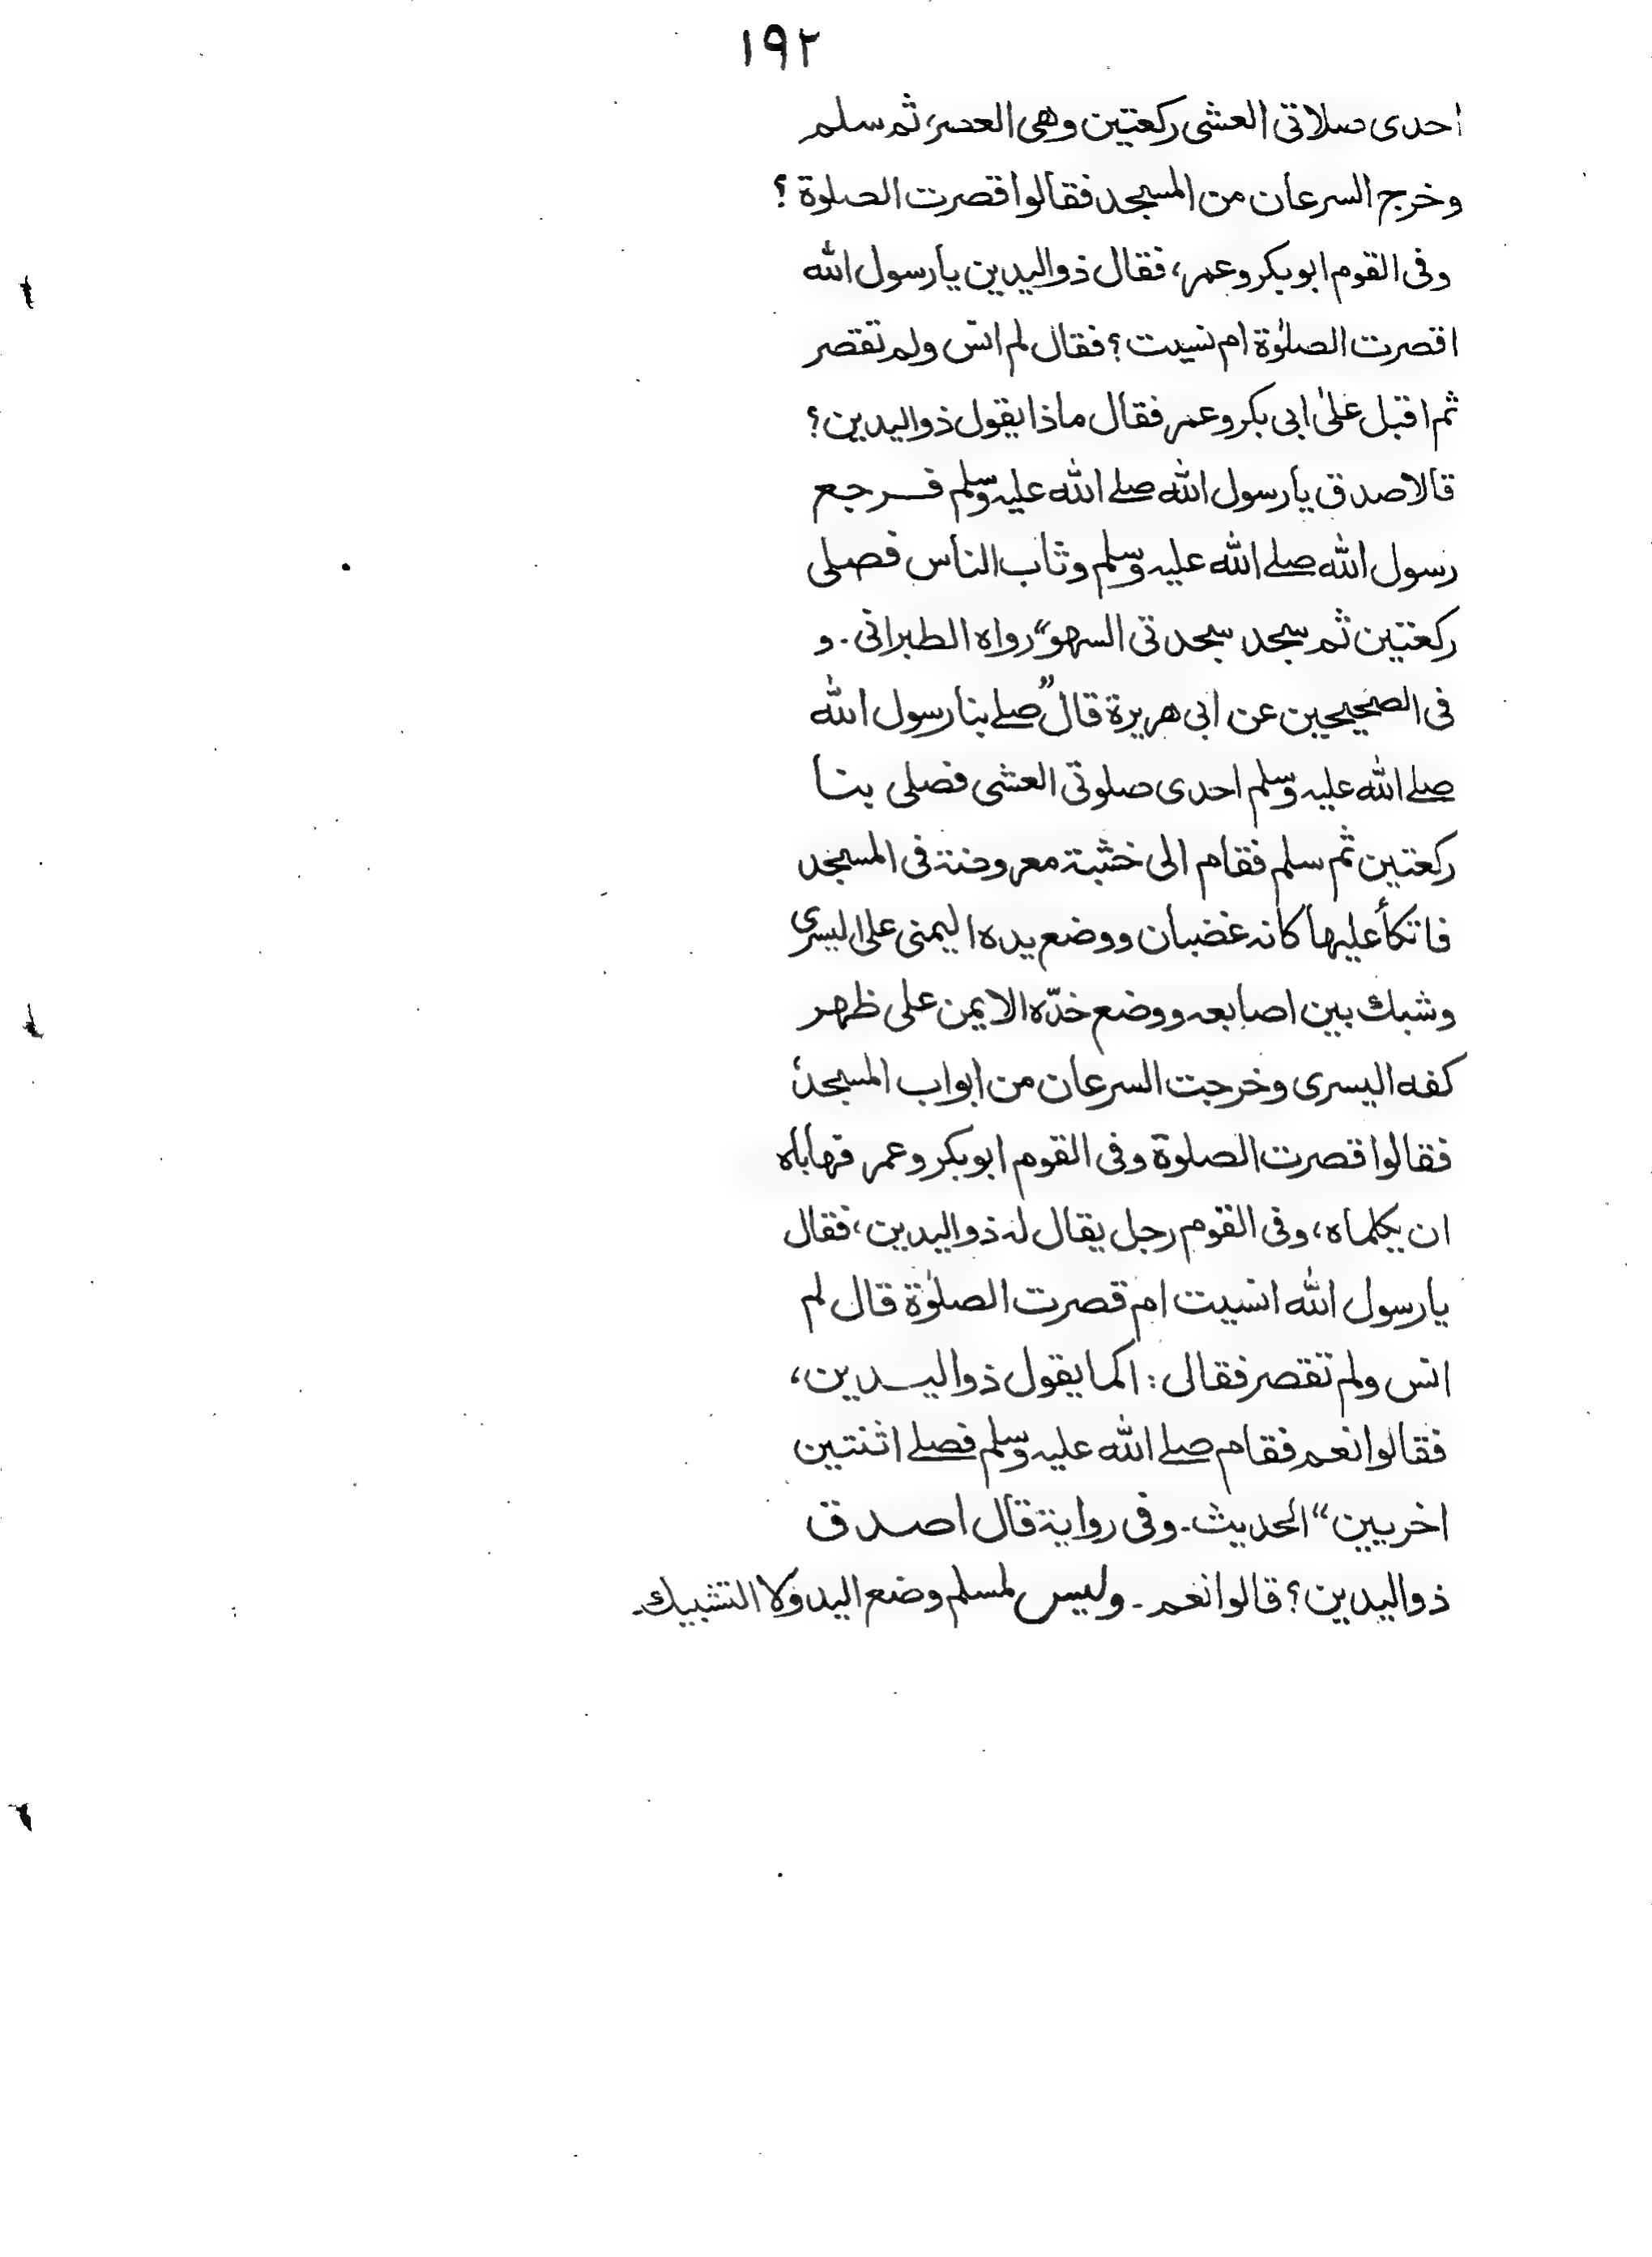 ١٩٢
احدى صلاتى العشى ركعتين وهى العصر، ثم سلم
وخرج السرعان من المسجد فقالوا قصرت الصلوة ؟
وفى القوم ابوبكر وعمر، فقال ذو اليدين يا رسول الله
اقصرت الصلوٰة ام نسيت؟ فقال لم انس ولم تقصر
ثم اقبل علىٰ ابى بكر وعمر فقال ماذا يقول ذو اليدين؟
قالا صدق يا رسول الله صلے الله عليه وسلم فرجع
رسول الله صلے الله عليه وسلم وثاب الناس فصلى
ركعتين ثم سجد سجدتى السهو“ رواه الطبرانى۔ و
فى الصحيحين عن ابى هريرة قال ”صلے بنا رسول الله
صلے الله عليه وسلم احدى صلوتى العشى فصلى بنا
ركعتين ثم سلم فقام الى خشبة معروضة فى المسجد
فاتكأ عليها كانه غضبان ووضع يده اليمنى على اليسرى
وشبك بين اصابعه ووضع خدّه الايمن على ظهر
كفه اليسرى وخرجت السرعان من ابواب المسجد،
فقالوا قصرت الصلوة وفى القوم ابوبكر وعمر فهاباه
ان يكلماه، وفى القوم رجل يقال له ذو اليدين، فقال
يا رسول الله انسيت ام قصرت الصلوٰة قال لم
انس ولم تقصر فقال : اكما يقول ذو اليدين،
فقالوا نعم فقام صلے الله عليه وسلم فصلے اثنتين
اخريين“ الحديث۔ وفى رواية قال اصدق
ذو اليدين؟ قالوا نعم ۔ وليس لمسلم وضع اليد ولا التشبيك۔